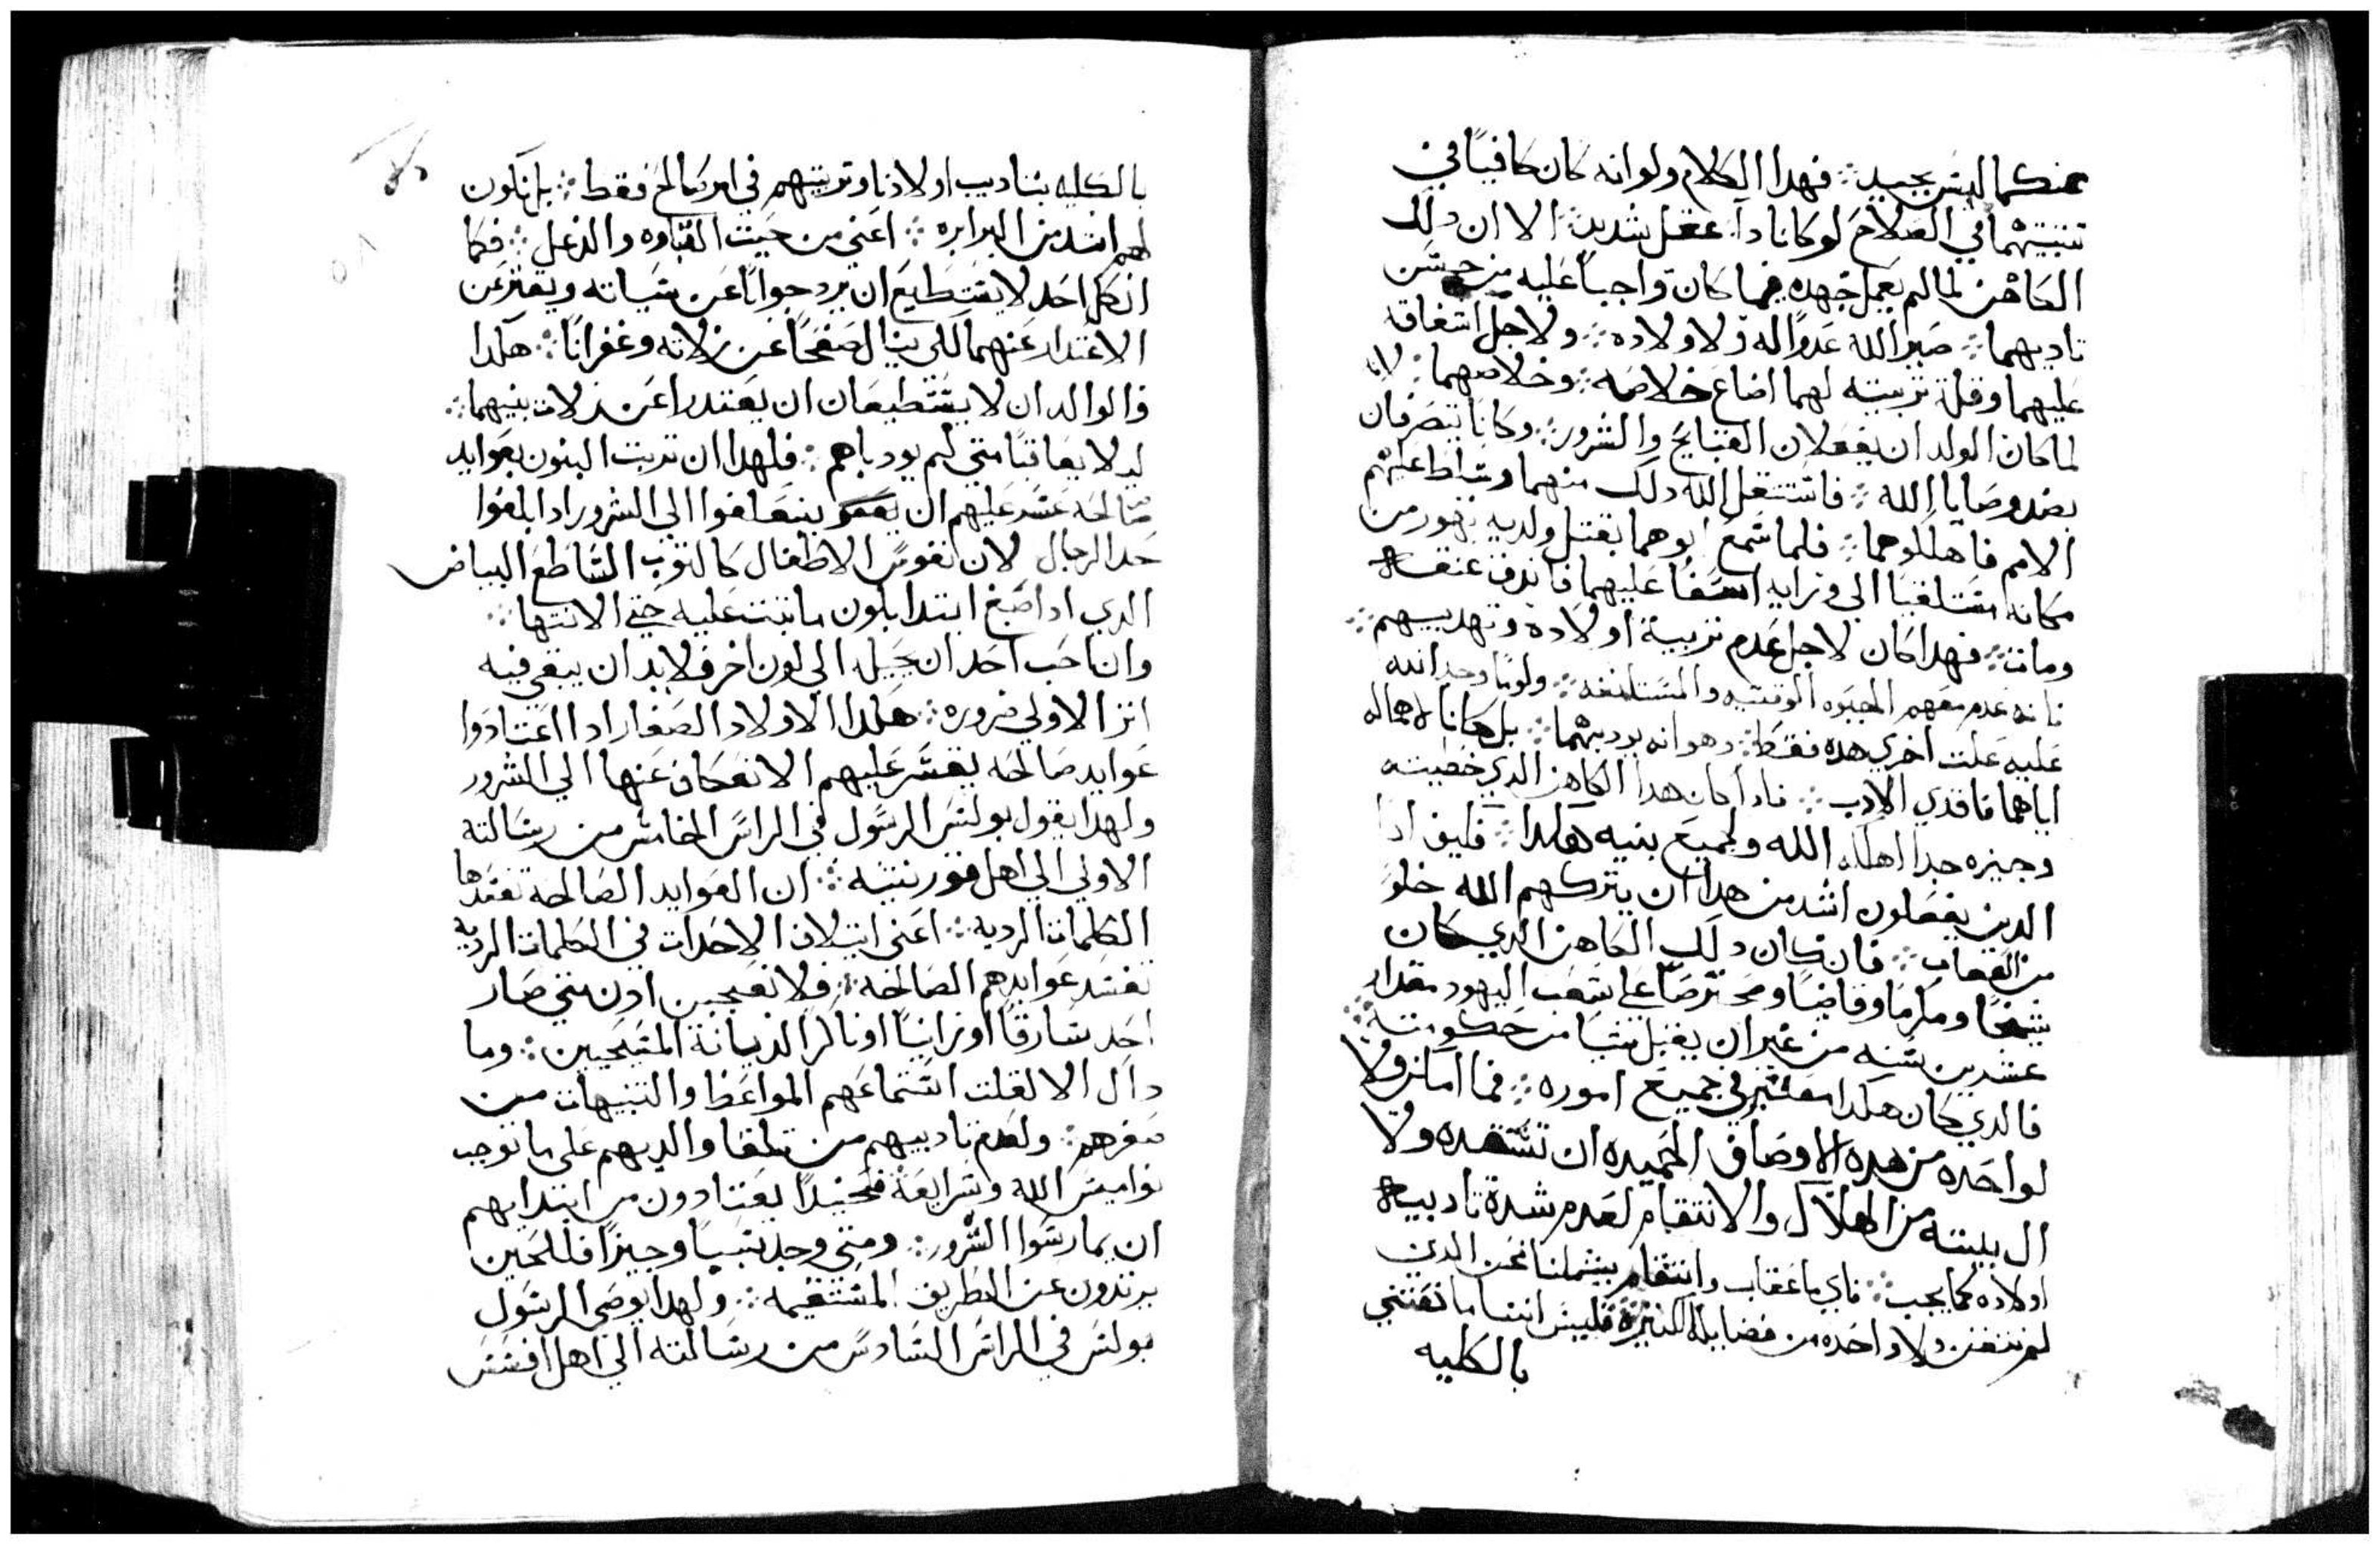 عنكما ليس بجيد ⁘ فهدا الكلام ولو انه كان كافيًا في
تتبيتهما في الصلاح لو كانا دا عقل شديد ⁘ الا ان دلك
الكاهن لما لم يعمل جهده فيما كان واجبًا عليه من حسن
تاديبهما ⁘ صير الله عدوًا له ولاولاده ⁘ ولاجل اشفاقه
عليهما وقلة تربيته لهما اضاع خلاصه ⁘ وخلاصهما ⁘ لانه
لما كان الولدان يفعلان القبايح والشرور ⁘ وكانا يتصرفان
بضد وصايا الله ⁘ فاشتعل الله دلك منهما وسلط عليهم
الامم فاهلكوهما ⁘ فلما سمع ابوهما بقتل ولديه تهور من
مكانه مستلقيا الي ورايه اسفًا عليهما فاندق عنقه
ومات ⁘ فهدا كان لاجل عدم تربية اولاده وتهديبهم ⁘
فانه عدم معهم الحيوه الوقتيه والمستانفه ⁘ ولو ما وجد الله
عليه علت اخري هده فقط ⁘ وهو انه يودبهما ⁘ بل كانا لاهماله
اياهما فاقدي الادب ⁘ فادا كان هدا الكاهن الدي خطيته
وجيزه جدا اهلكه الله ولجميع بنيه هكدا ⁘ فكيف ادا
الدين يفعلون اشد من هدا ان يتركهم الله خلوً
من العقاب ⁘ فان كان دلك الكاهن الدي كان
شيخًا ومكرمًا وقاضيًا ومحترصًا علي شعب اليهود مقدار
عشرين سنه من غير ان يقبل شيًا من حكومته ⁘
فالدي كان هكدا معتبر في جميع اموره ⁘ فما امكن ولا
لواحده من هده الاوصاف الحميده ان تسعده ولا
ال بيته من الهلاك والانتقام لعدم شدة تاديبه
اولاده كما يجب ⁘ فاي ما عقاب وانتقام يشملنا نحن الدين
لم نقتن ولا واحده من فضايله الكثيره فليس اننا ما نعتني
بالكليه
بالكليه بتاديب اولادنا وتربيتهم في امر صالح فقط ⁘ بل نكون
لهم اشد من البرابره ⁘ اعني من حيت القساوه والدغل ⁘ فكما
ان كل احد لا يستطيع ان يرد جوابًا عن سياته ويعتبر عن
الاعتدار عنهما لكي ينال صفحًا عن زلاته وغفرانًا ⁘ هكدا
والوالدان لا يستطيعان ان يعتدرا عن زلات بنيهما ⁘
ليلا يعاقبا متي لم يودباهم ⁘ فلهدا ان تربت البنون بعوايد
صالحه عسر عليهم ان ينعطفوا الي الشرور ادا بلغوا
حد الرجال لان نفوس الاطفال كالتوب الساطع البياض
الدي ادا صبغ ابتدا بلون ما تبت عليه حتي الانتها ⁘
وان احب احد ان يحيله الي لون اخر فلا بد ان يبقي فيه
اتر الاولي ضروره ⁘ هكدا الاولاد الصغار ادا اعتادوا
عوايد صالحه يعسر عليهم الانعكاف عنها الي الشرور
ولهدا يقول بولس الرسول في الراس الخامس من رسالته
الاولي الي اهل قورنتيه ⁘ ان العوايد الصالحه تفسدها
الكلمات الرديه ⁘ اعني ايتلاف الاحدات في الكلمات الرديه
تفسد عوايدهم الصالحه ⁘ فلا تعجبن ادن متي صار
احد سارقًا او زانيًا او ناكرًا لديانة المسيحيين ⁘ وما
داك الا لقلت استماعهم المواعظ والتنبيهات من
صغرهم ⁘ ولعدم تاديبهم من تلقا والديهم علي ما توجب
نواميس الله وشرايعه فحينيدًا يعتادون من ابتدايهم
ان يمارسوا الشرور ⁘ ومتي وجد سببًا وجيزًا فللحين
يرتدون عن الطريق المستقيمه ⁘ ولهدا يوصي الرسول
بولس في الراس السادس من رسالته الي اهل افسس